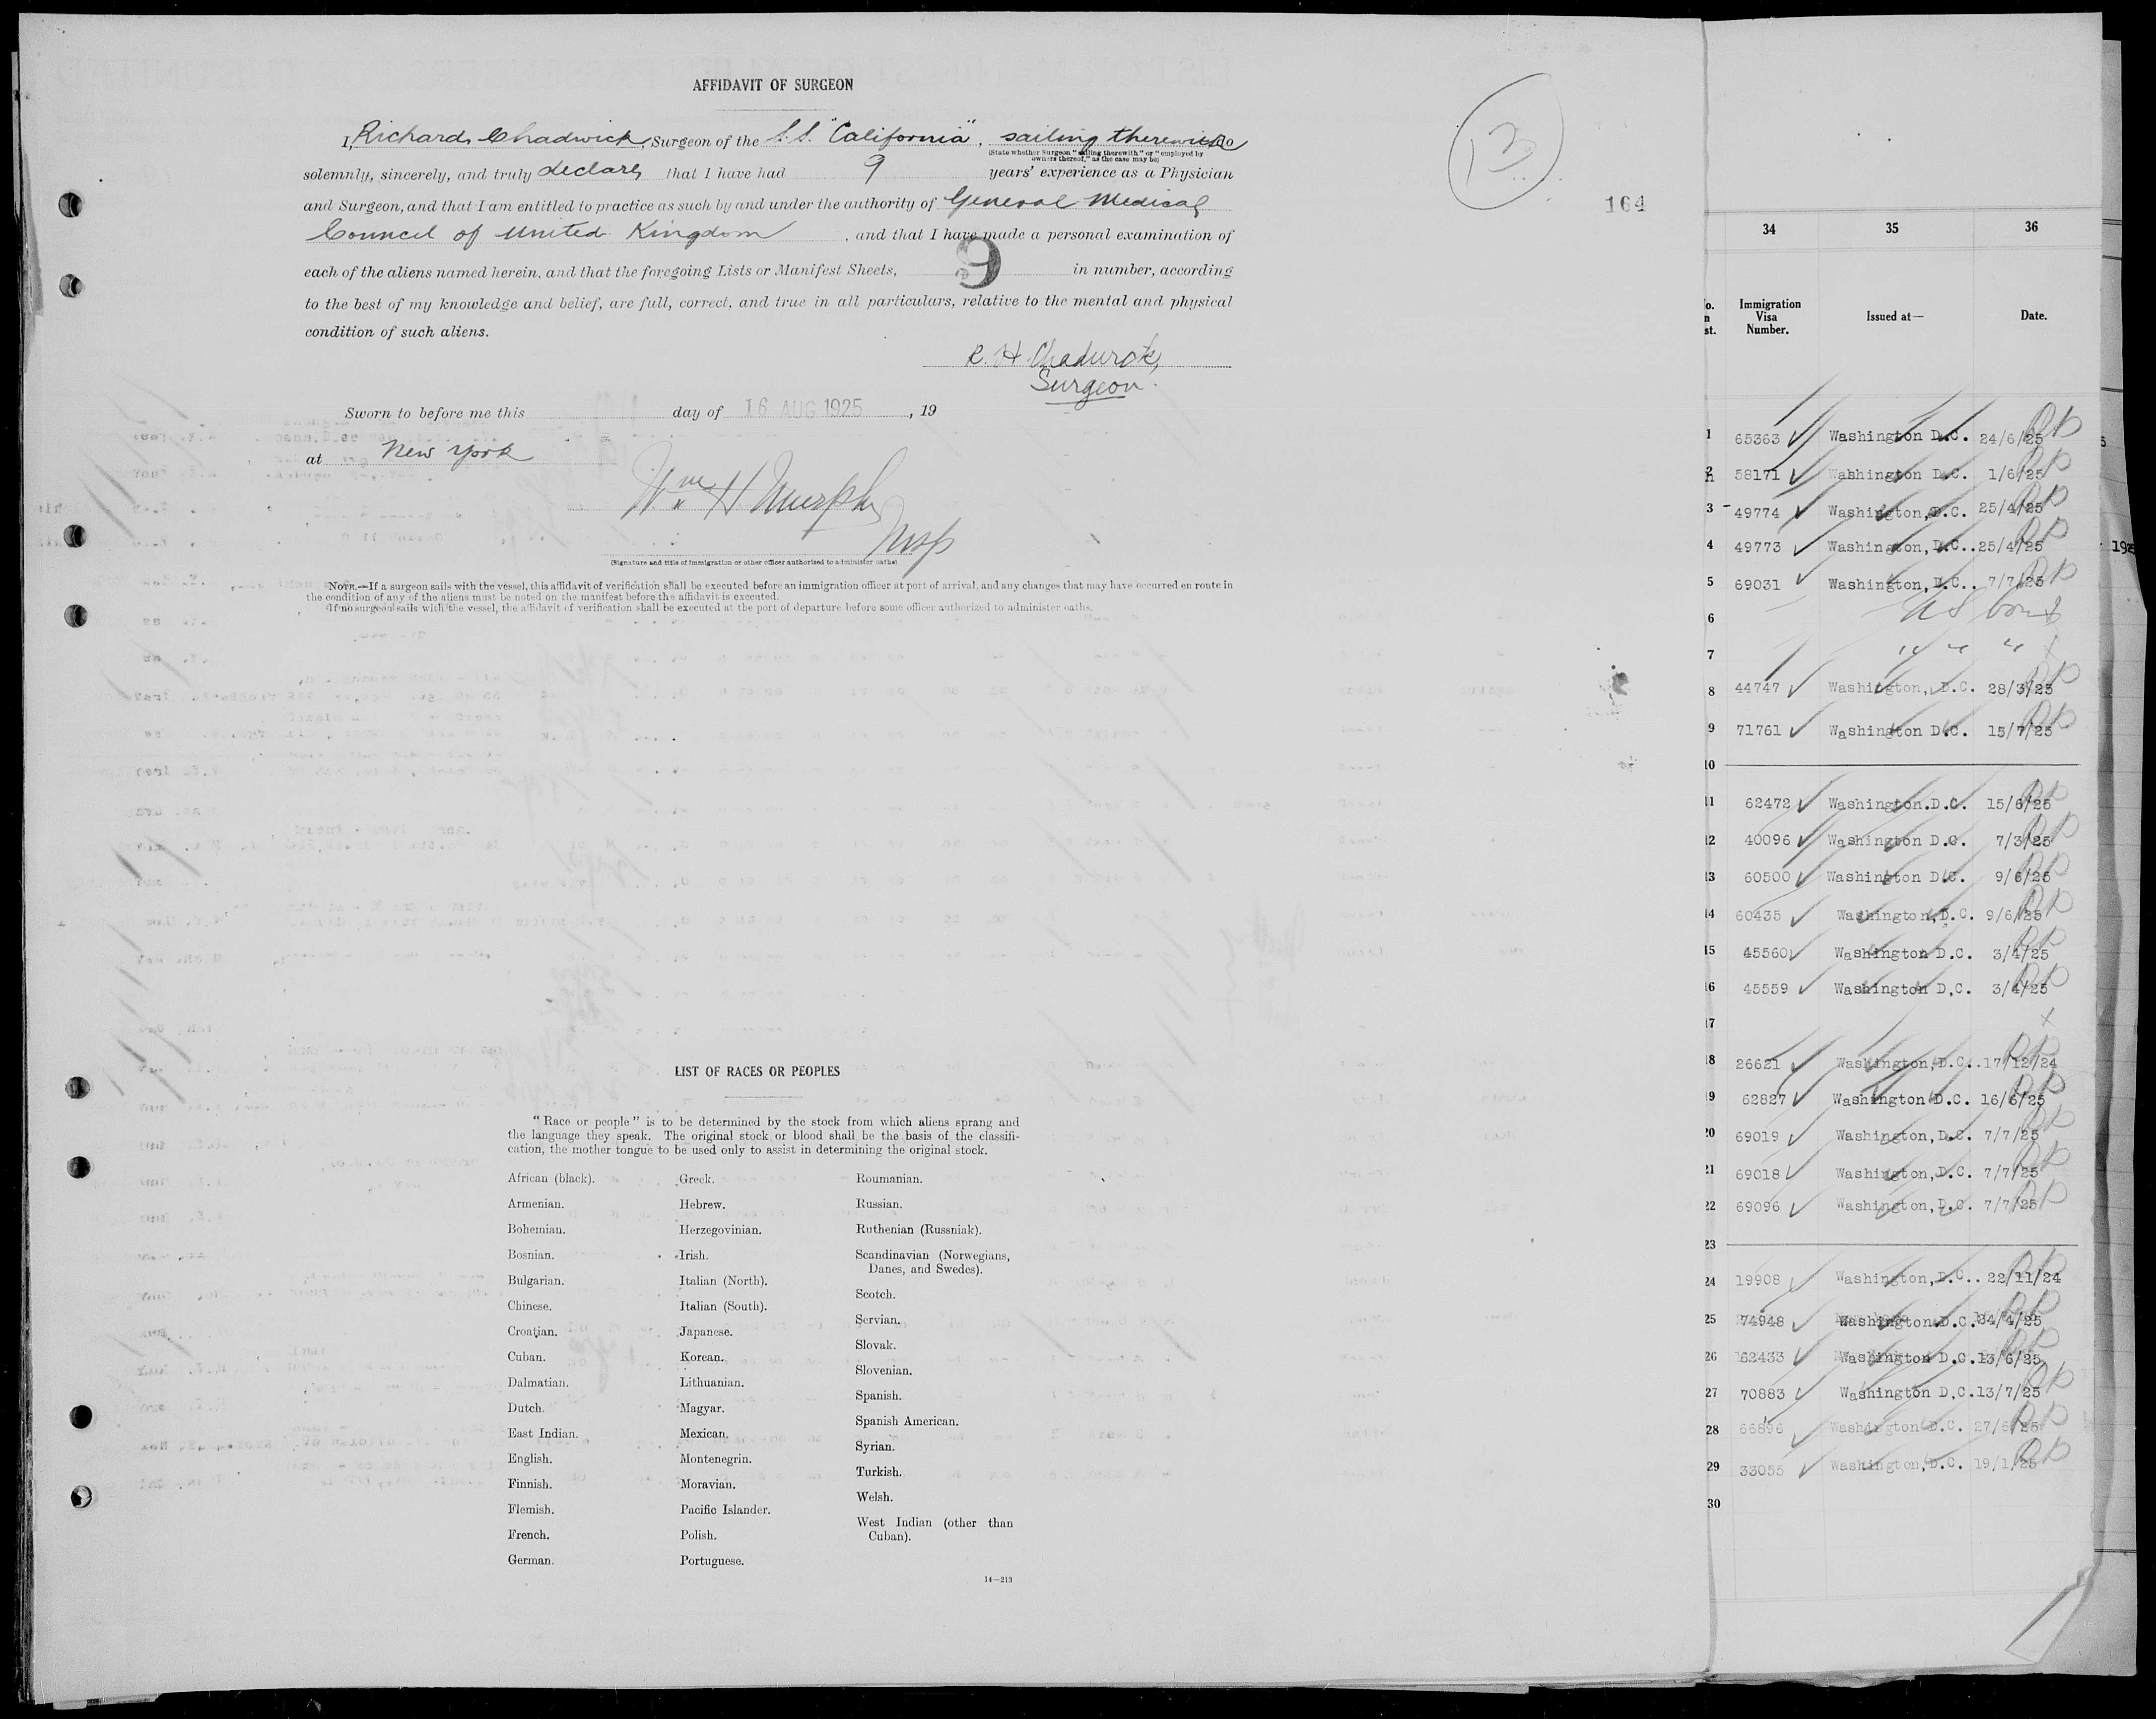 AFFIDAVIT OF SURGEON
I, Richard Chadwick, Surgeon of the S.S. "California", sailing therewith do
(State whether Surgeon "sailing therewith" or "employed by
owners thereof," as the case may be)
solemnly, sincerely, and truly declare that I have had 9 years' experience as a Physician
and Surgeon, and that I am entitled to practice as such by and under the authority of General Medical
Council of United Kingdom, and that I have made a personal examination of
each of the aliens named herein, and that the foregoing Lists or Manifest Sheets, 9 in number, according
to the best of my knowledge and belief, are full, correct, and true in all particulars, relative to the mental and physical
condition of such aliens.
R. H Chadwick,
Surgeon.
Sworn to before me this day of 16 AUG 1925, 19
at New York
Wm H Murphy
Insp
(Signature and title of immigration or other officer authorized to administer oaths)
NOTE.—If a surgeon sails with the vessel, this affidavit of verification shall be executed before an immigration officer at port of arrival, and any changes that may have occurred en route in
the condition of any of the aliens must be noted on the manifest before the affidavit is executed.
If no surgeon sails with the vessel, the affidavit of verification shall be executed at the port of departure before some officer authorized to administer oaths.
13
164
LIST OF RACES OR PEOPLES
"Race or people" is to be determined by the stock from which aliens sprang and
the language they speak. The original stock or blood shall be the basis of the classifi-
cation, the mother tongue to be used only to assist in determining the original stock.
African (black).
Armenian.
Bohemian.
Bosnian.
Bulgarian.
Chinese.
Croatian.
Cuban.
Dalmatian.
Dutch.
East Indian.
English.
Finnish.
Flemish.
French.
German.
Greek.
Hebrew.
Herzegovinian.
Irish.
Italian (North).
Italian (South).
Japanese.
Korean.
Lithuanian.
Magyar.
Mexican.
Montenegrin.
Moravian.
Pacific Islander.
Polish.
Portuguese.
Roumanian.
Russian.
Ruthenian (Russniak).
Scandinavian (Norwegians,
Danes, and Swedes).
Scotch.
Servian.
Slovak.
Slovenian.
Spanish.
Spanish American.
Syrian.
Turkish.
Welsh.
West Indian (other than
Cuban).
14—213
34 35 36
Immigration
Visa
Number. Issued at— Date.
1 65363 Washington D.C. 24/6/25
2 58171 Washington D.C. 1/6/25
3 49774 Washington, D.C. 25/4/25
4 49773 Washington, D.C.. 25/4/25
5 69031 Washington, D.C.. 7/7/25
6 US born
7 " " "
8 44747 Washington, D.C. 28/3/25
9 71761 Washington D.C. 15/7/25
10
11 62472 Washington.D.C. 15/6/25
12 40096 Washington D.C. 7/3/25
13 60500 Washington D.C. 9/6/25
14 60435 Washington,D.C. 9/6/25
15 45560 Washington D.C. 3/4/25
16 45559 Washington D,C. 3/4/25
17
18 26621 Washington,D.C..17/12/24
19 62827 Washington D.C. 16/6/25
20 69019 Washington,D.C. 7/7/25
21 69018 Washington,D.C. 7/7/25
22 69096 Washington,D.C. 7/7/25
23
24 19908 Washington,D.C.. 22/11/24
25 74948 Washington D.C. /4/25
26 62433 Washington D.C.13/6/25
27 70883 Washington D.C.13/7/25
28 66896 Washington D.C. 27/6/25
29 33055 Washington,D.C. 19/1/25
30